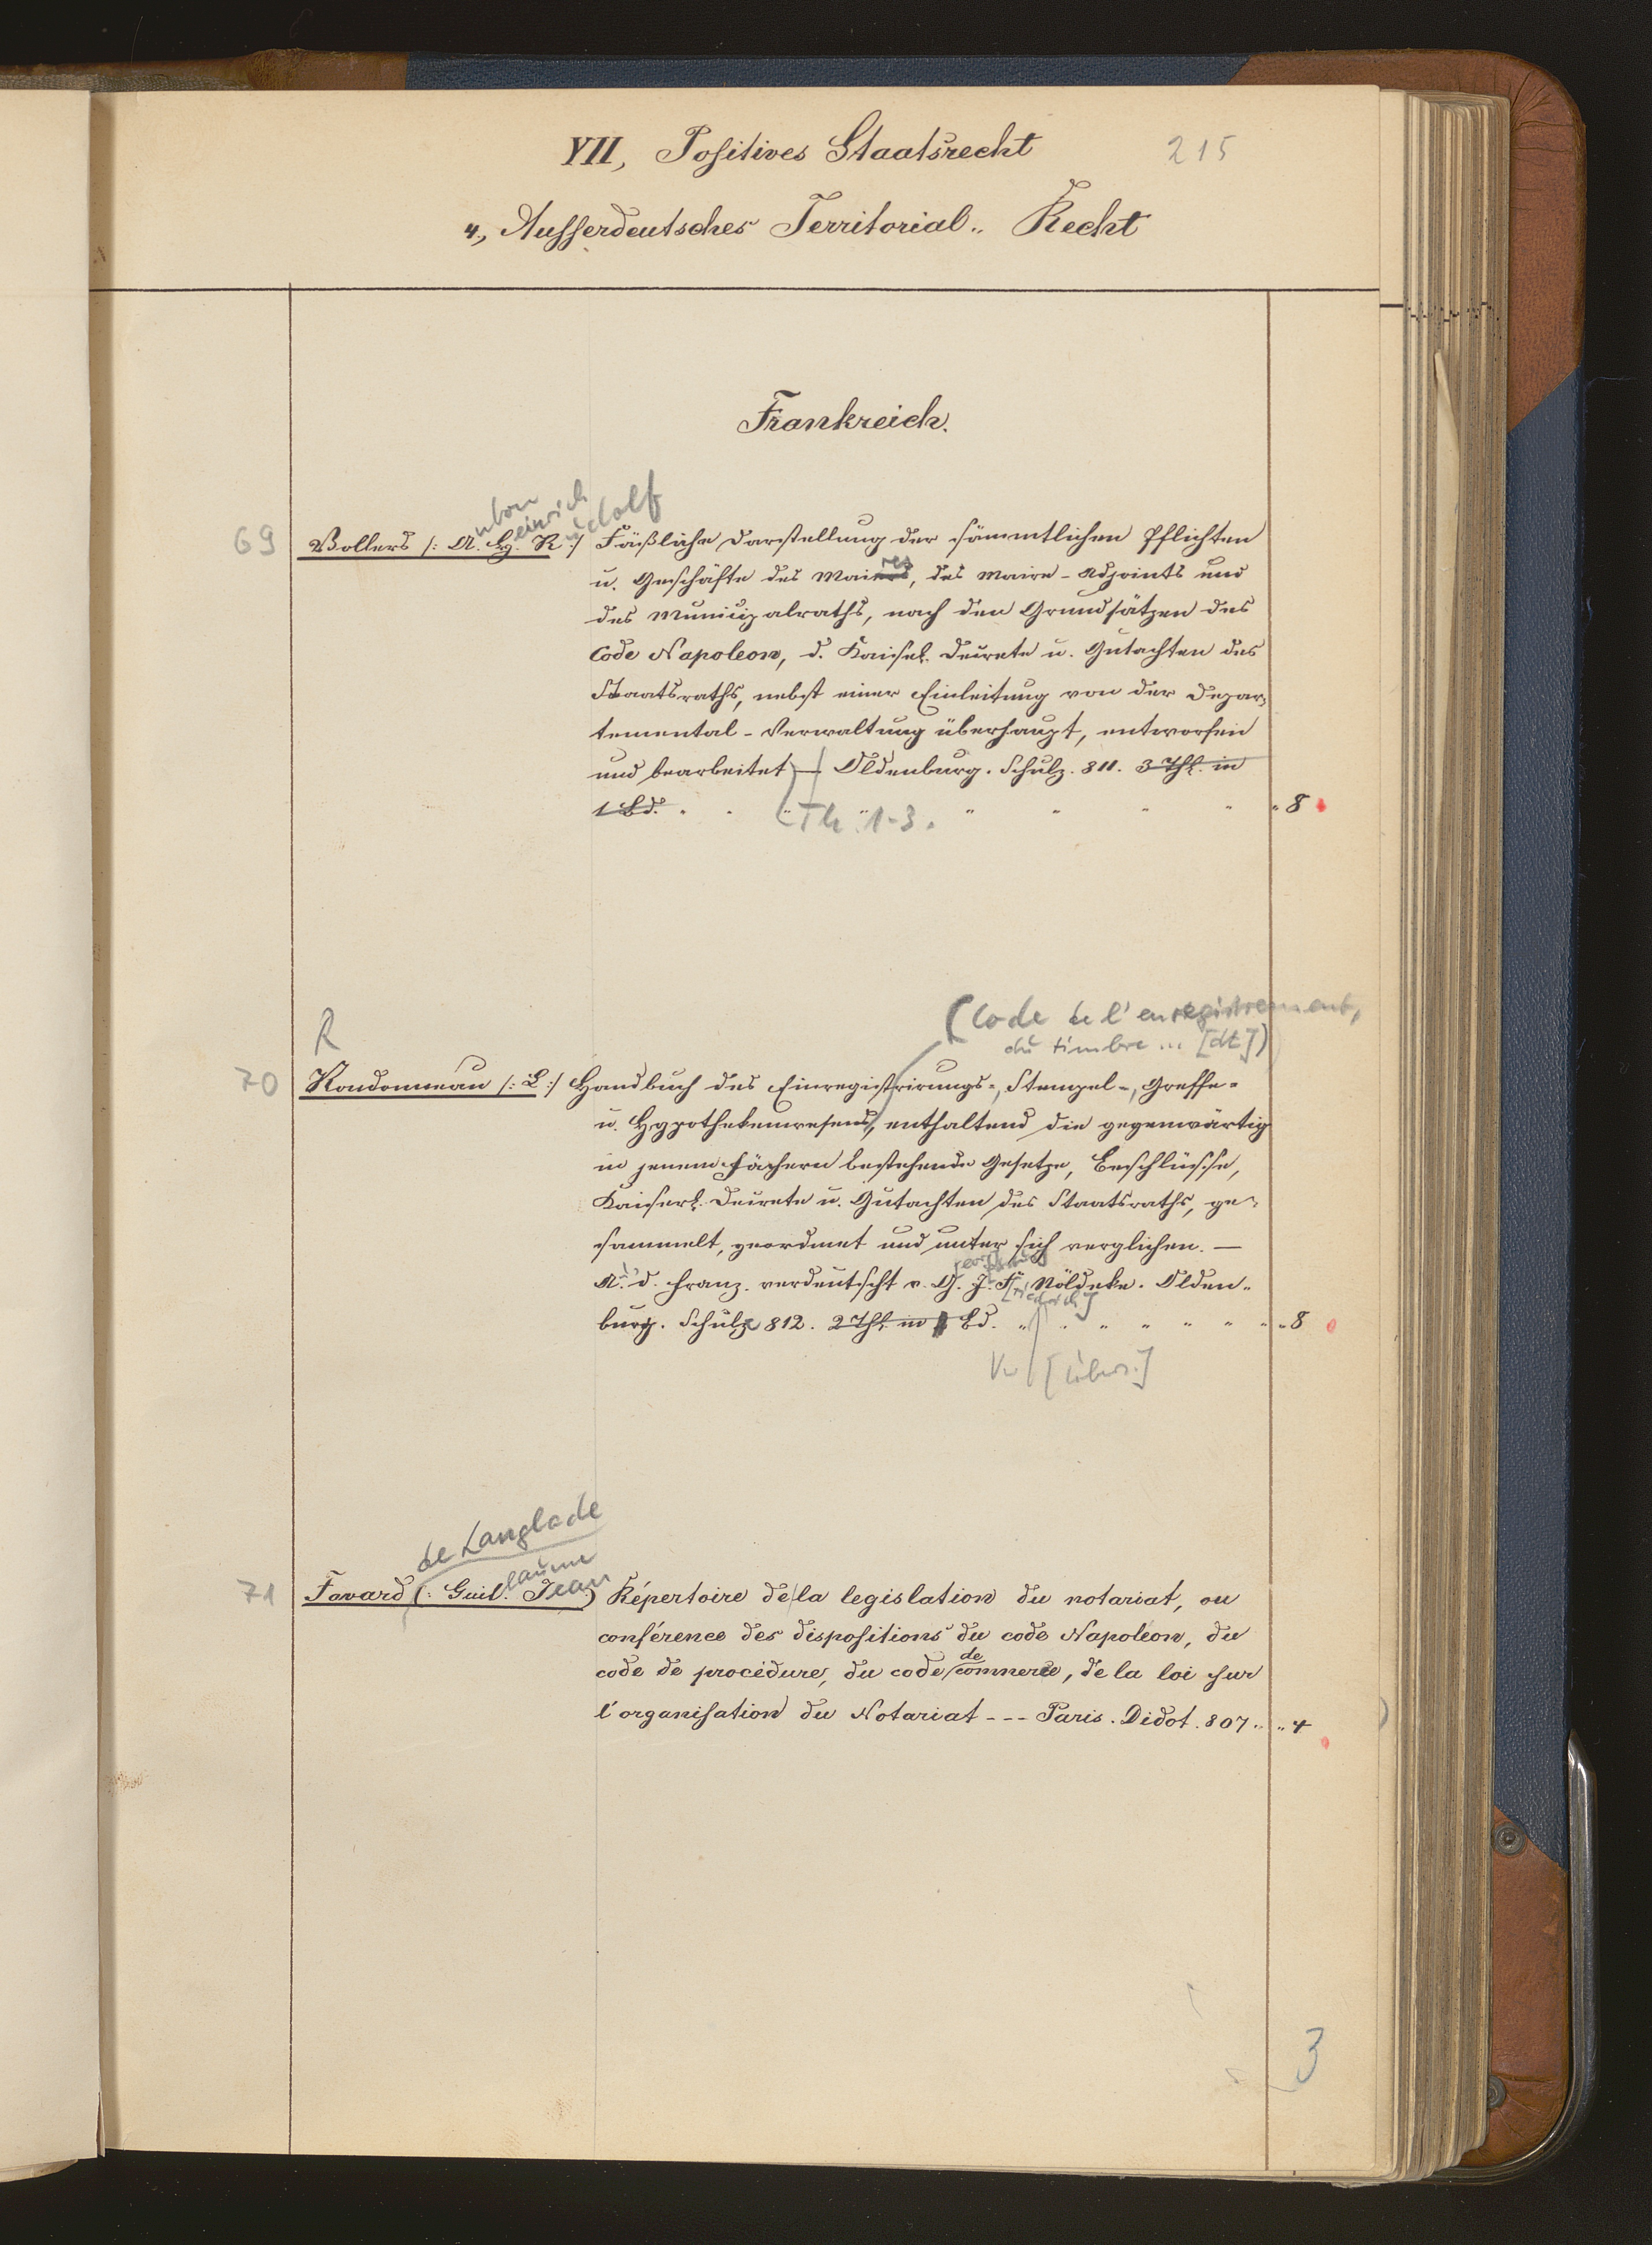 VII, Positives Staatsrecht
215
4., Ausserdeutsches Territorial.. Recht
Frankreich.
nton einrich udolf
69
Vollers /: A. H. R :/ Faßliche Darstellung der sämmtlichen Pflichten
res
u. Geschäfte des Maires, des Maire-Adjoints und
des Municipalraths, nach den Grundsätzen des
Code Napoleon, d. Kaiserl. Decrete u. Gutachten des
Staatsraths, nebst einer Einleitung von der Depar-
temental-Verwaltung überhaupt, entworfen
und bearbeitet — Oldenburg. Schulz. 811. 3 Thl. in
1 Bd. " 8
(Th. 1-3.
(Code de l'enregistrement,
du timbre ... [dt])
R
70
Rondonneau /: L :/ Handbuch des Einregistrirungs-, Stempel-, Greffe-
u. Hypothekenwesens, enthaltend die gegenwärtig
in jenem Fächern bestehende Gesetze, Beschlüsse,
Kaiserl. Decrete u. Gutachten des Staatsraths, ge-
sammelt, geordnet und unter sich verglichen. —
A. d. Franz. verdeutscht v. G. J. F. Nöldeke. Olden-
[riedrich]
burg. Schulze 812. 2 Thl. in 1 Bd. " 8
[Übers.]
de Langlade
laume
71
Favard (: Guil. Jean) Répertoire de la legislation du notariat, ou
conférence des dispositions du code Napoléon, du
de
code de procédure, du code commerce, de la loi sur
l'organisation du Notariat --- Paris. Didot. 807 " 4
3